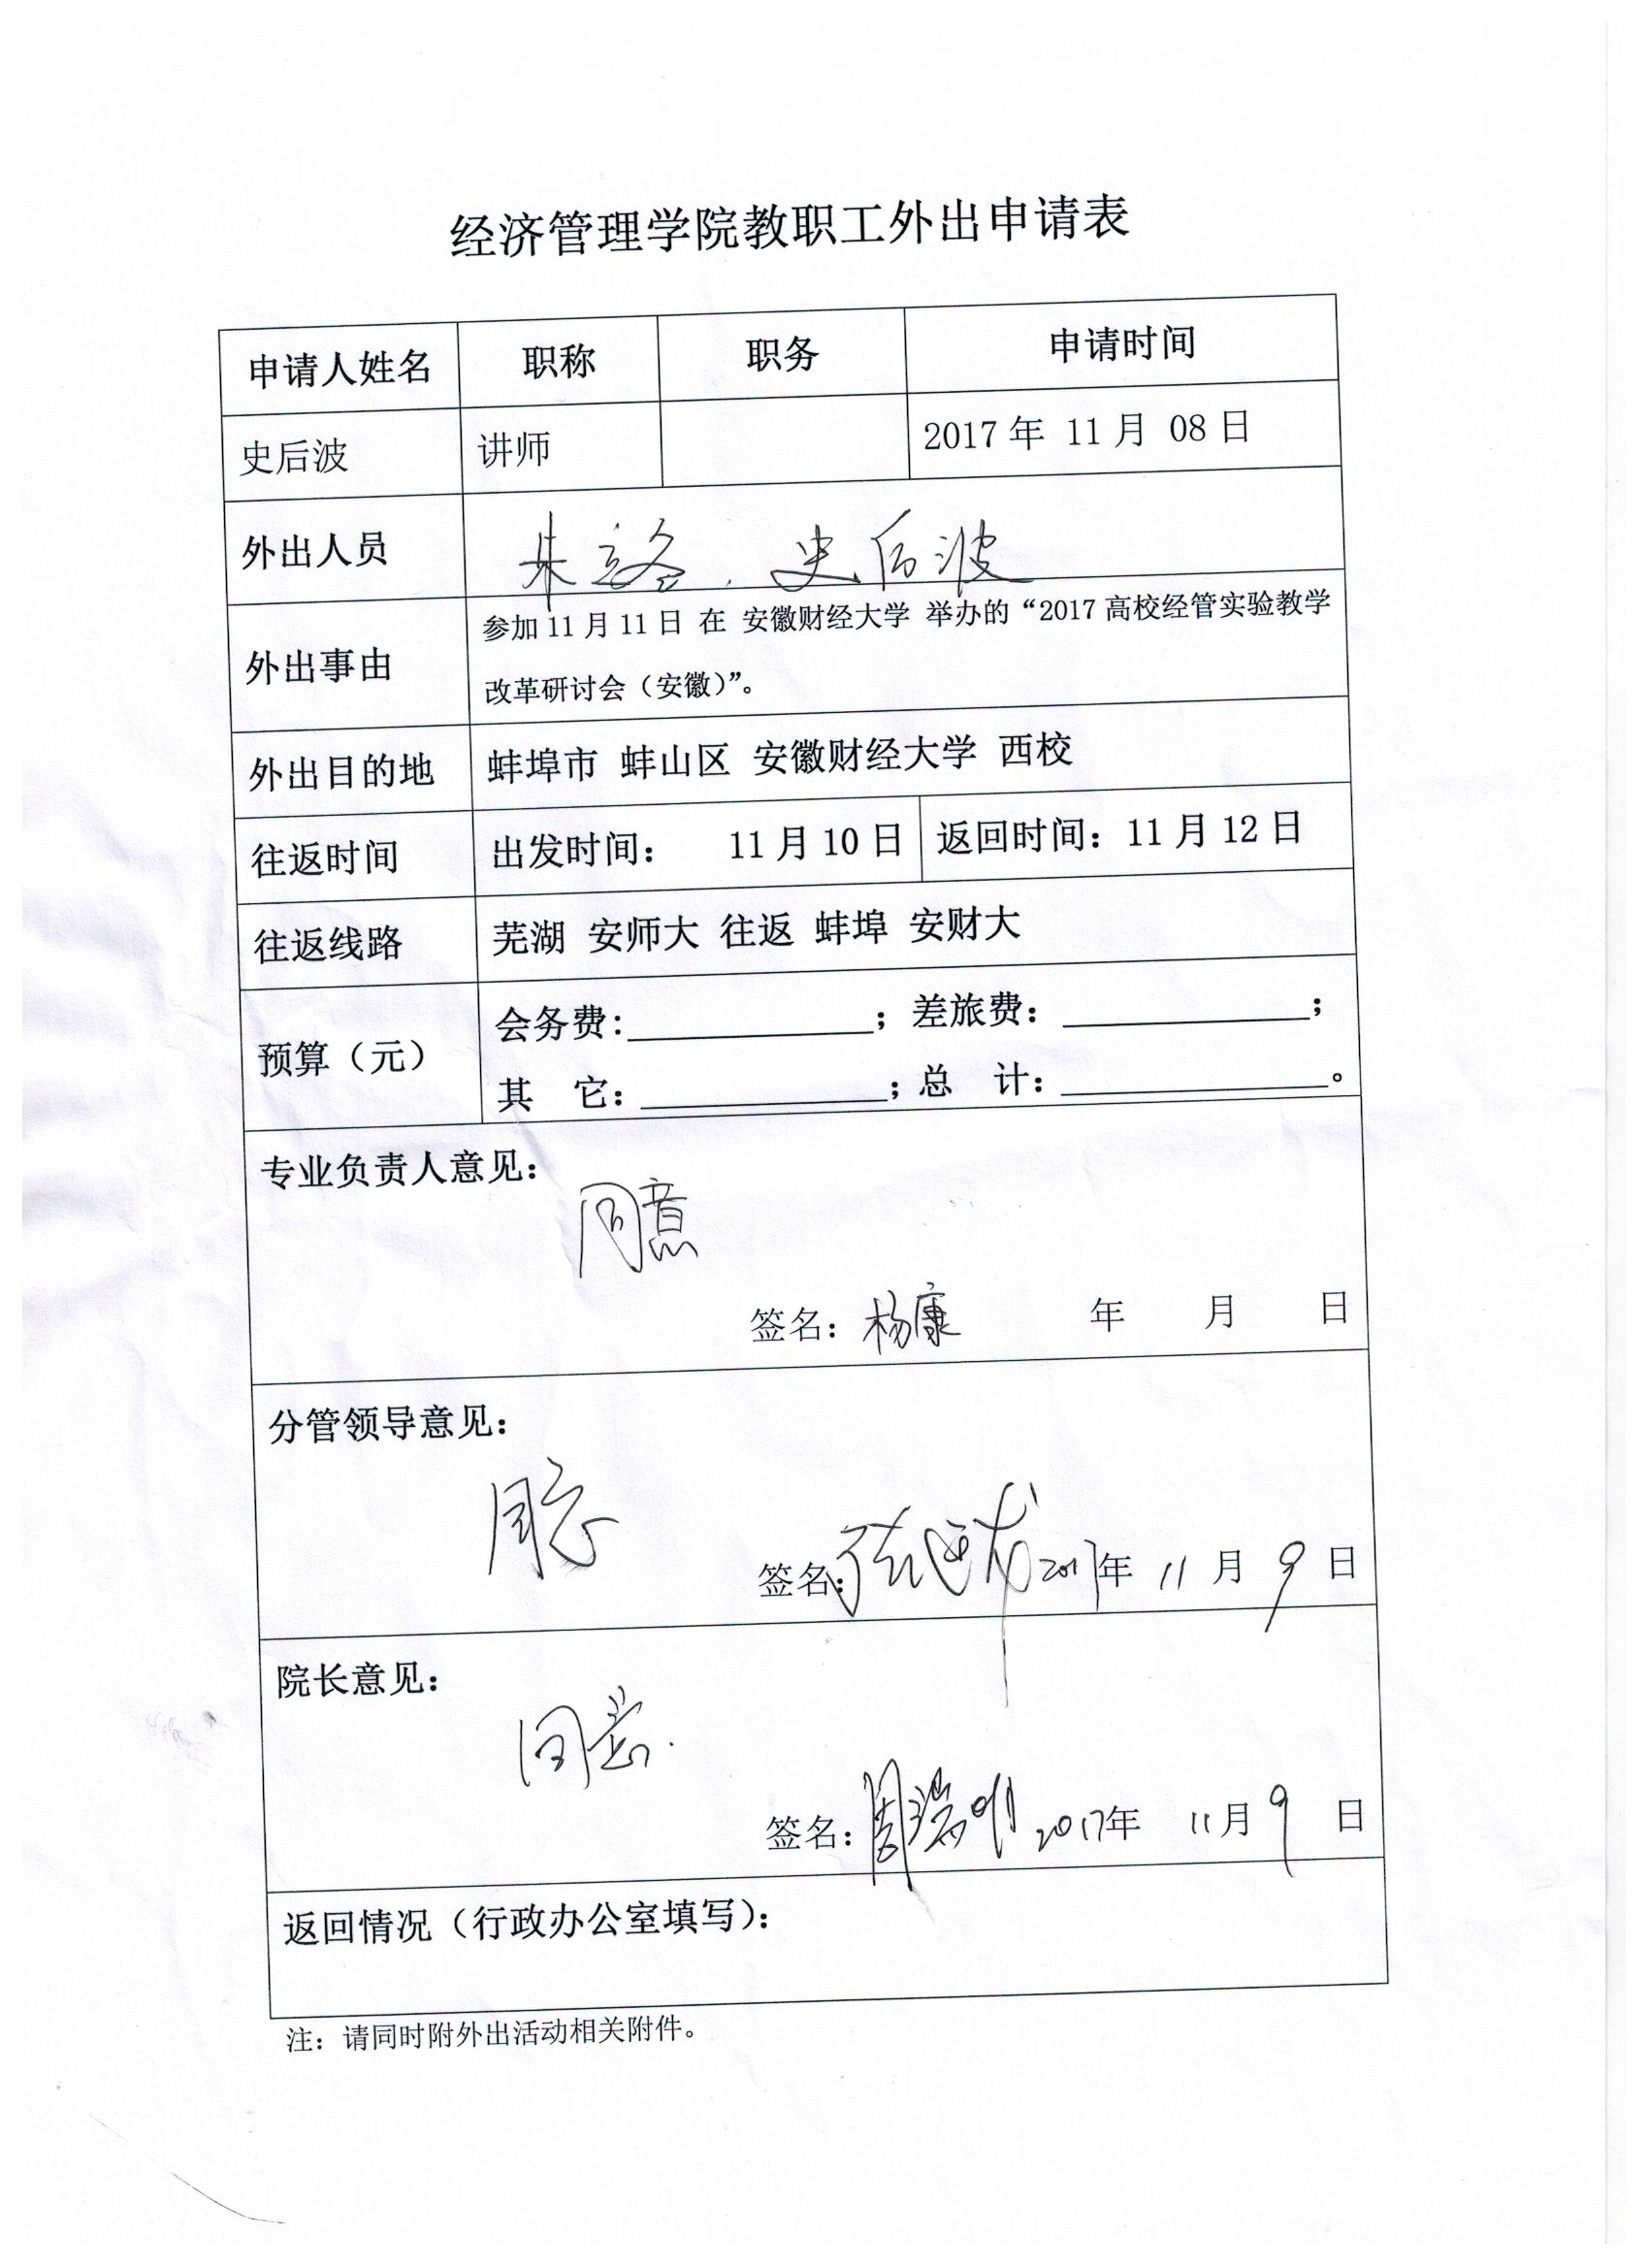 经济管理学院教职工外出申请表
申请人姓名 职称 职务 申请时间
史后波 讲师 2017 年 11 月 08 日
外出人员 朱 史后波
外出事由 参加 11 月 11 日 在 安徽财经大学 举办的“2017 高校经管实验教学
改革研讨会（安徽）”。
外出目的地 蚌埠市 蚌山区 安徽财经大学 西校
往返时间 出发时间： 11 月 10 日 返回时间：11 月 12 日
往返线路 芜湖 安师大 往返 蚌埠 安财大
预算（元） 会务费：____________；差旅费：____________；
其 它：____________；总 计：____________。
专业负责人意见：
同意
签名：杨康 年 月 日
分管领导意见：
同意
签名： 2017年 11 月 9 日
院长意见：
同意.
签名：周瑞明 2017年 11月 9 日
返回情况（行政办公室填写）：
注：请同时附外出活动相关附件。